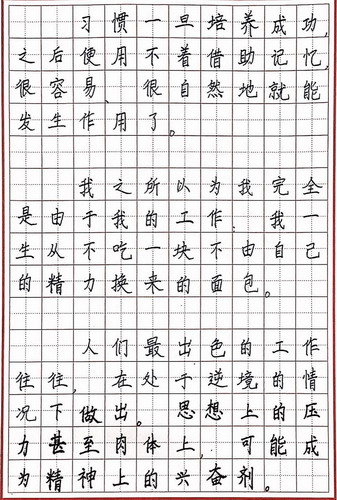 习惯一旦培养成功,
之后便用不着借助记忆,
很容易、很自然地就能
发生作用了。
我之所以为我完全
是由于我的工作。我一
生从不吃一块不由自己
的精力换来的面包。
人们最出色的工作
往往,在处于逆境的情
况下做出。思想上的压
力甚至肉体上,可能成
为精神上的兴奋剂。